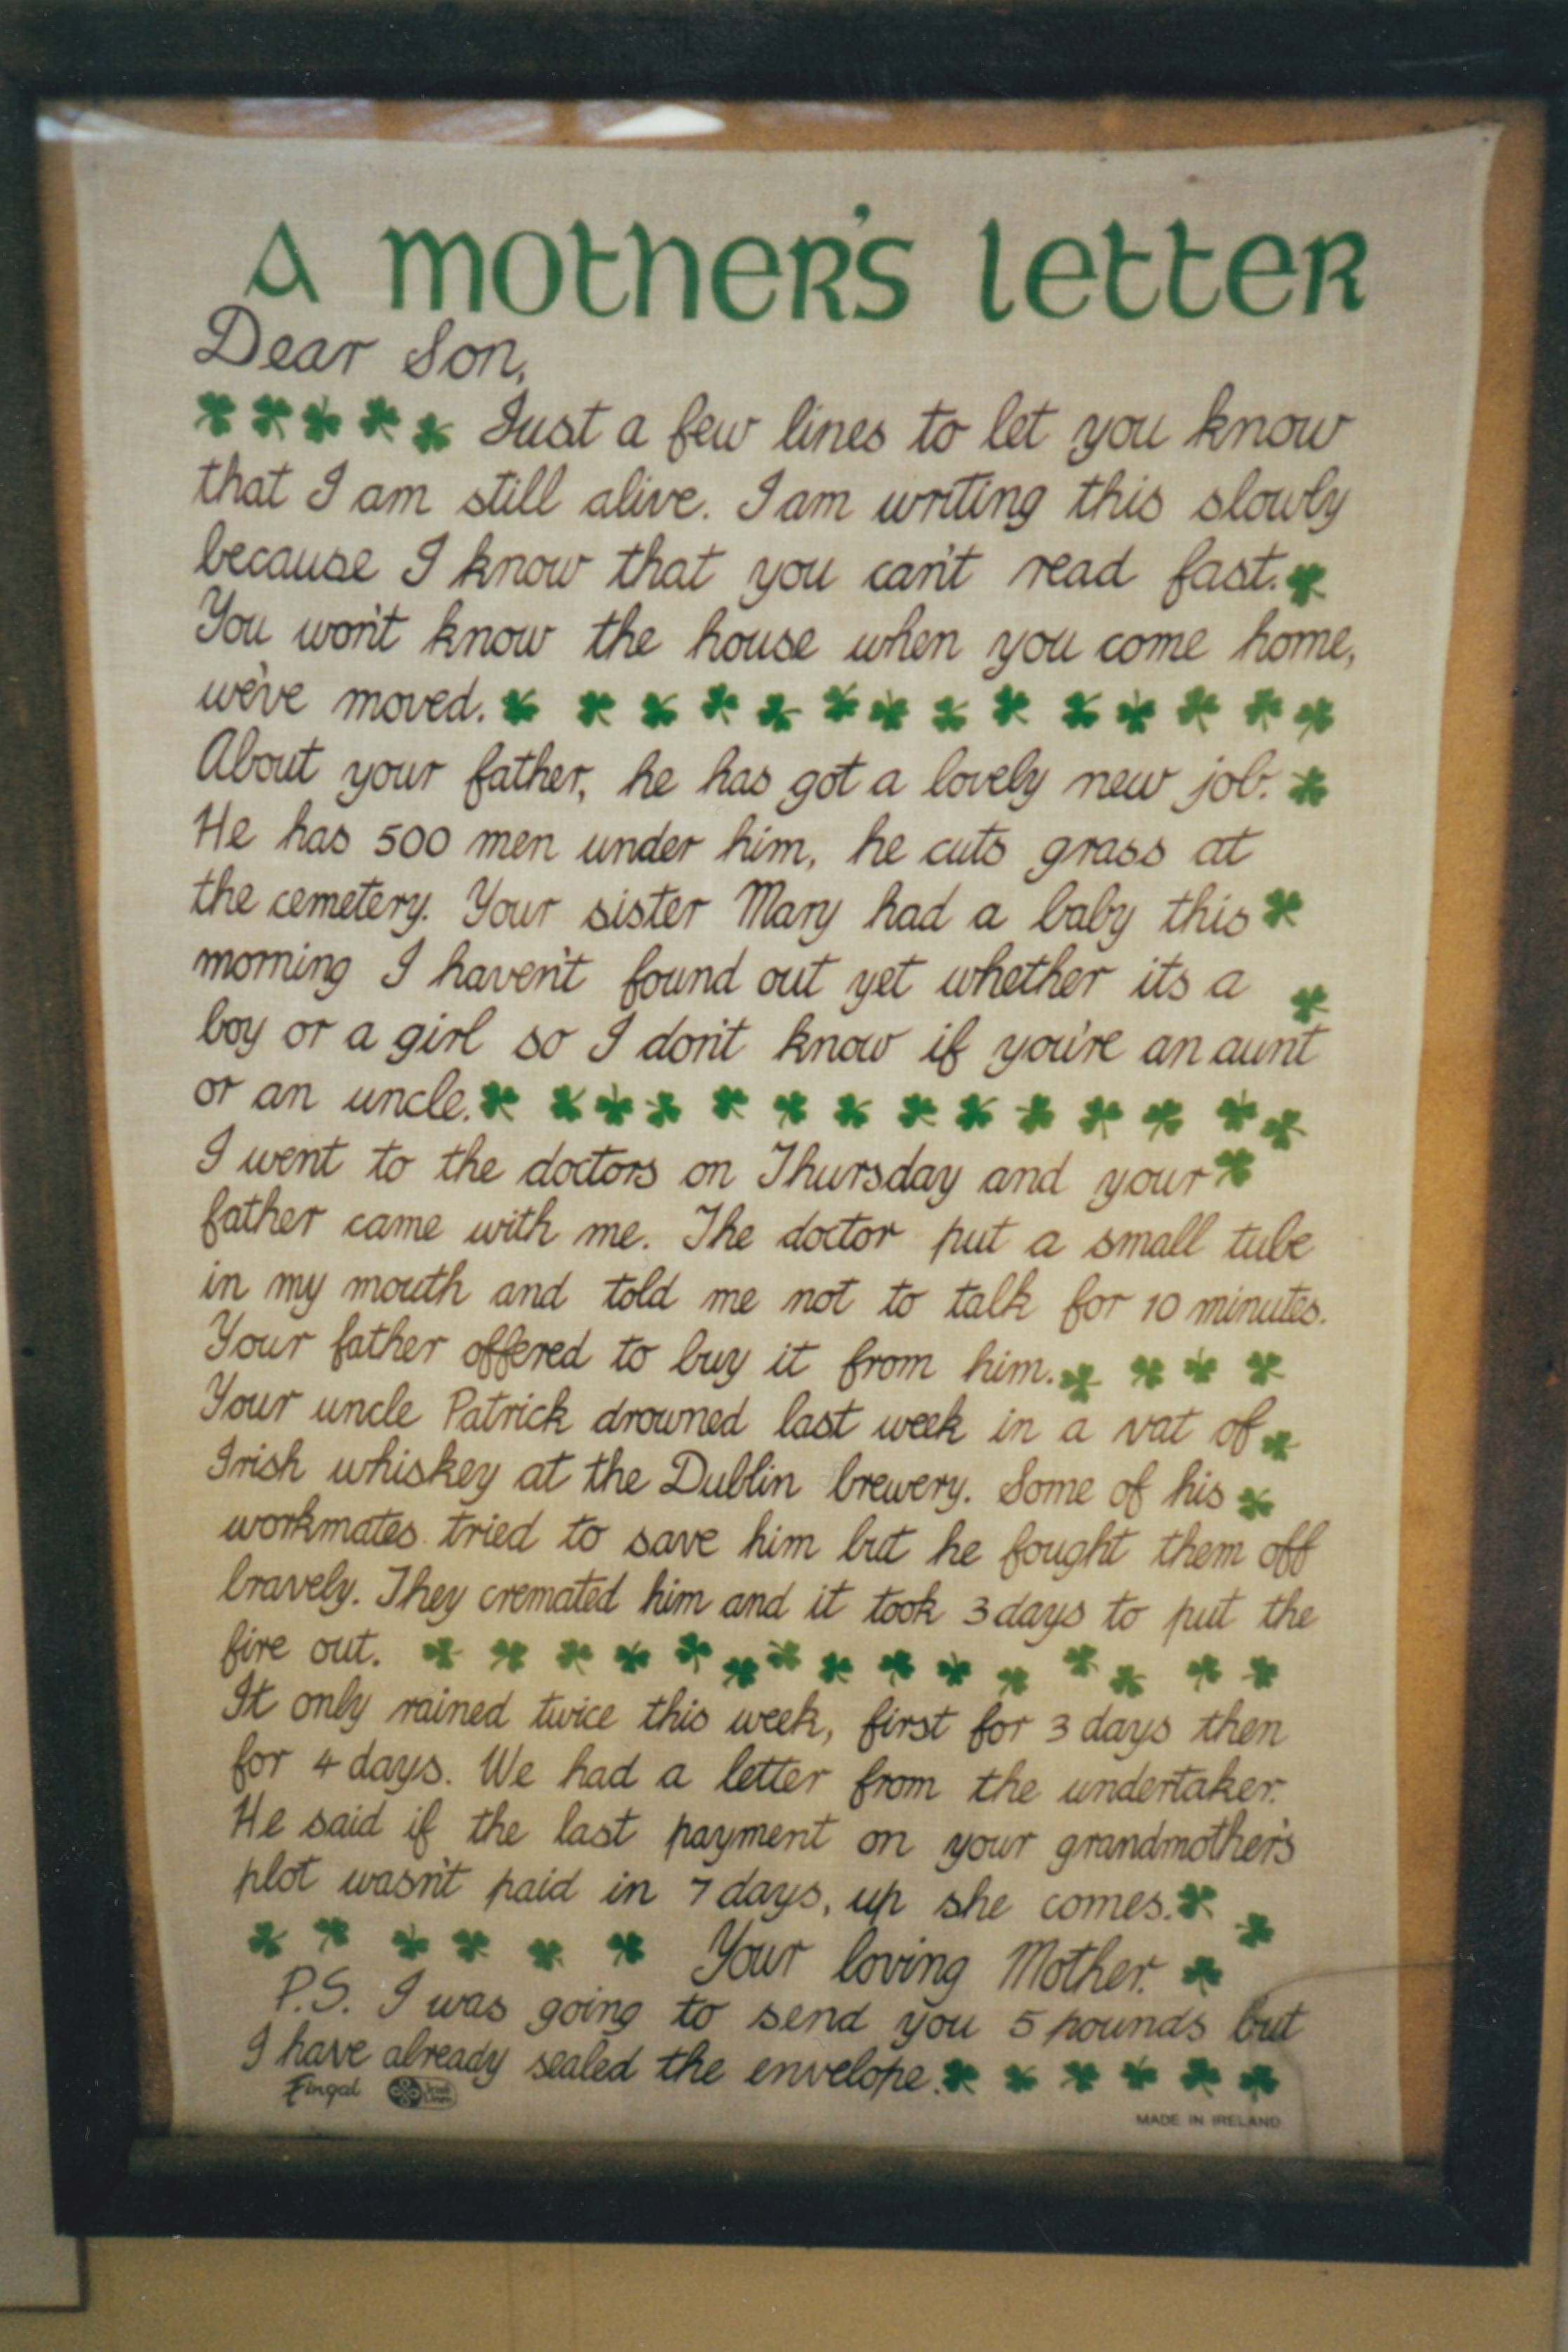 A MOTHER'S LETTER
Dear Son,
Just a few lines to let you know
that I am still alive. I am writing this slowly
because I know that you can't read fast.
You won't know the house when you come home,
we've moved.
About your father, he has got a lovely new job.
He has 500 men under him, he cuts grass at
the cemetery. Your sister Mary had a baby this
morning I haven't found out yet whether its a
boy or a girl so I don't know if you're an aunt
or an uncle.
I went to the doctors on Thursday and your
father came with me. The doctor put a small tube
in my mouth and told me not to talk for 10 minutes.
Your father offered to buy it from him.
Your uncle Patrick drowned last week in a vat of
Irish whiskey at the Dublin brewery. Some of his
workmates tried to save him but he fought them off
bravely. They cremated him and it took 3 days to put the
fire out.
It only rained twice this week, first for 3 days then
for 4 days. We had a letter from the undertaker.
He said if the last payment on your grandmother's
plot wasn't paid in 7 days, up she comes.
Your loving Mother.
P.S. I was going to send you 5 pounds but
I have already sealed the envelope.
Fingal
MADE IN IRELAND